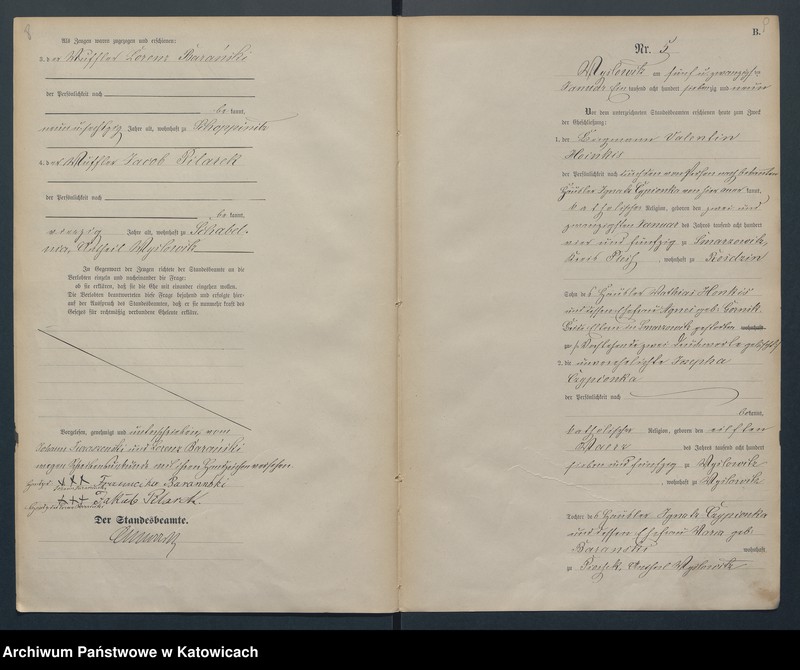 8
Als Zeugen waren zugezogen und erschienen:
3. der Lorenz Barański
der Persönlichkeit nach
be kannt,
neunundsechzig Jahre alt, wohnhaft zu Schoppinitz
4. der Jacob Pilarek
der Persönlichkeit nach
be kannt,
vierzig Jahre alt, wohnhaft zu Schabel-
nia, Antheil Myslowitz
In Gegenwart der Zeugen richtete der Standesbeamte an die
Verlobten einzeln und nacheinander die Frage:
ob sie erklären, daß sie die Ehe mit einander eingehen wollen.
Die Verlobten beantworteten diese Frage bejahend und erfolgte hier-
auf der Ausspruch des Standesbeamten, daß er sie nunmehr kraft des
Gesetzes für rechtmäßig verbundene Eheleute erkläre.
Vorgelesen, genehmigt und unterschrieben, vom
und Lorenz Barański
wegen Schreibensunkunde mit ihren Handzeichen versehen.
+++ Barannski
+++ Jakob Pilarek.
Der Standesbeamte.
B.
9
Nr. 5
Myslowitz am fünf u. zwanzigsten
Januar Ein tausend acht hundert siebenzig und neun
Vor dem unterzeichneten Standesbeamten erschienen heute zum Zweck
der Eheschließung:
1. der Bergmann Valentin
Hoinkis
der Persönlichkeit nach durch den von Person nach bekannten
Häusler Ignatz Cypionka von hier aner kannt,
katholischer Religion, geboren den zwei und
zwanzigsten Januar des Jahres tausend acht hundert
vier und fünfzig zu Smarzowitz,
Kreis Pleß, wohnhaft zu Rosdzin
Sohn des Häusler Mathias Honkis
und dessen Ehefrau Agnes geb. Górnik.
Beide Eltern in Smarzowitz gestorben wohnhaft
zu p. Vorstehende zwei Druckworte gelöscht
2. die unverehelichte Josepha
Cypionka
der Persönlichkeit nach
bekannt,
katholischer Religion, geboren den elften
März des Jahres tausend acht hundert
sieben und fünfzig zu Myslowitz
, wohnhaft zu Myslowitz
Tochter des Häusler Ignatz Cypionka
und dessen Ehefrau Maria geb.
Baranski wohnhaft
zu Piasek, Antheil Myslowitz
Archiwum Państwowe w Katowicach